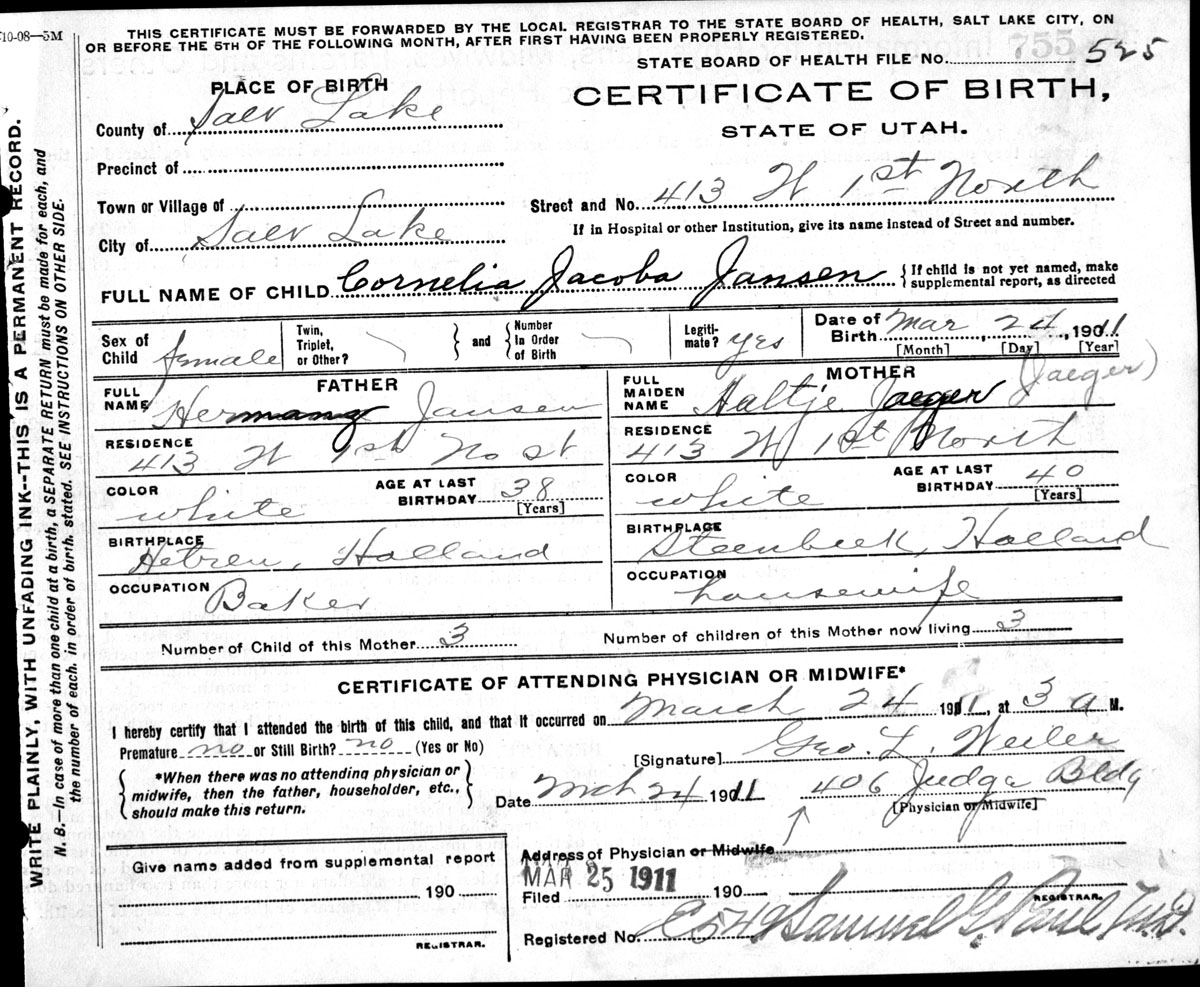 10-08—5M
THIS CERTIFICATE MUST BE FORWARDED BY THE LOCAL REGISTRAR TO THE STATE BOARD OF HEALTH, SALT LAKE CITY, ON
OR BEFORE THE 5TH OF THE FOLLOWING MONTH, AFTER FIRST HAVING BEEN PROPERLY REGISTERED.
STATE BOARD OF HEALTH FILE NO. 525
PLACE OF BIRTH
CERTIFICATE OF BIRTH,
STATE OF UTAH.
County of Salt Lake
Precinct of
Town or Village of
Street and No. 413 W 1st North
City of Salt Lake
If in Hospital or other Institution, give its name instead of Street and number.
FULL NAME OF CHILD Cornelia Jacoba Jansen { If child is not yet named, make
supplemental report, as directed
Sex of Child female
Twin, Triplet, or Other? } and { Number In Order of Birth
Legitimate? Yes
Date of Birth Mar 24, 1911
[Month] [Day] [Year]
FATHER
FULL NAME Hermang Jansen
RESIDENCE
413 W 1st No St
COLOR white
AGE AT LAST BIRTHDAY 38
[Years]
BIRTHPLACE
Holland
OCCUPATION
Baker
MOTHER
FULL MAIDEN NAME Haltje Jaeger (Jaeger)
RESIDENCE
413 W 1st North
COLOR white
AGE AT LAST BIRTHDAY 40
[Years]
BIRTHPLACE
Steenbeek, Holland
OCCUPATION
housewife
Number of Child of this Mother 3
Number of children of this Mother now living 3
CERTIFICATE OF ATTENDING PHYSICIAN OR MIDWIFE*
I hereby certify that I attended the birth of this child, and that it occurred on March 24 1911, at 3 a M.
Premature no or Still Birth? no (Yes or No)
[Signature] Geo. L. Weiler
{ *When there was no attending physician or
midwife, then the father, householder, etc.,
should make this return. }
Date Mch 24 1911
406 Judge Bldg
[Physician or Midwife]
Address of Physician or Midwife
Give name added from supplemental report
190
REGISTRAR.
MAR 25 1911
Filed 190
REGISTRAR.
Registered No. Samuel G. Paul M.D.
WRITE PLAINLY, WITH UNFADING INK--THIS IS A PERMANENT RECORD.
N. B.—In case of more than one child at a birth, a SEPARATE RETURN must be made for each, and
the number of each, in order of birth, stated. SEE INSTRUCTIONS ON OTHER SIDE.